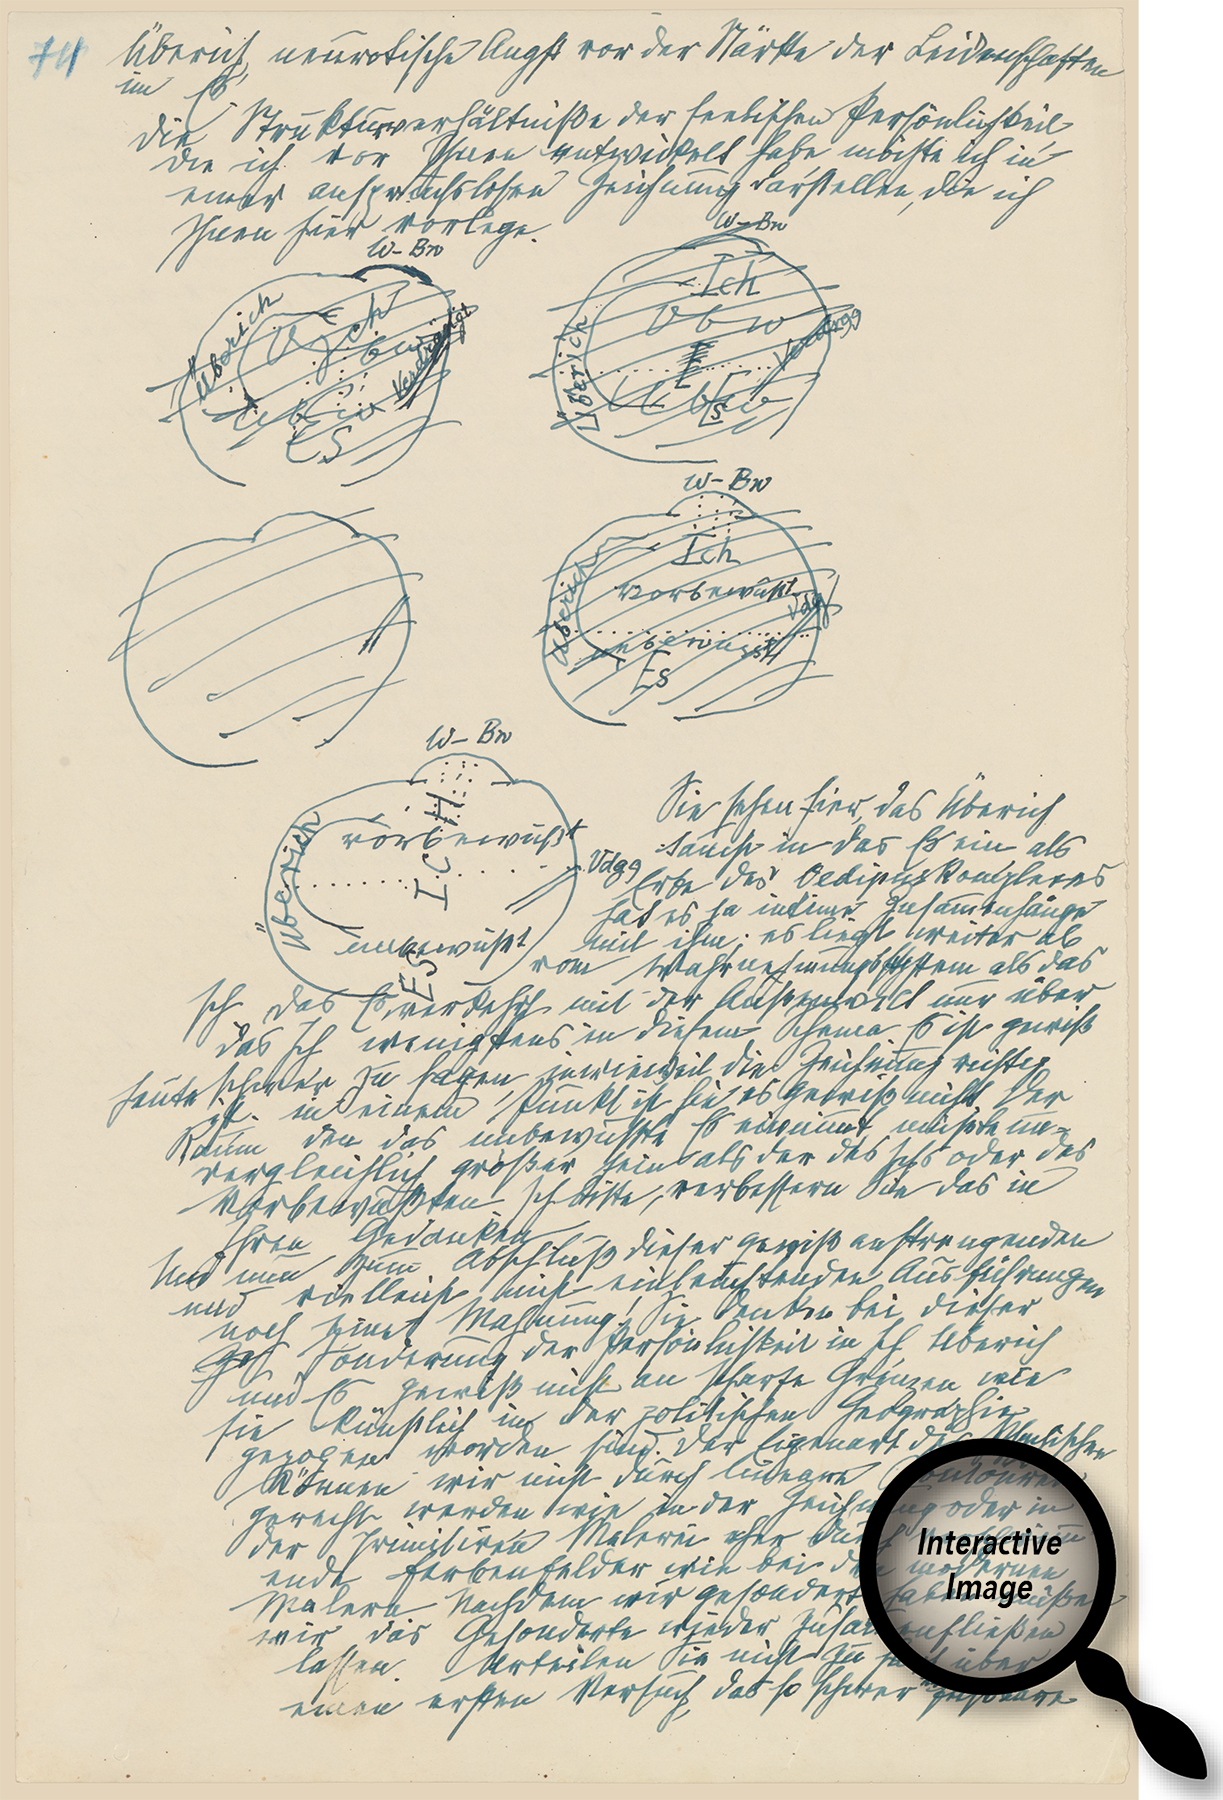 74 Überich, neurotische Angst vor der Stärke der Leidenschaften
im Es.
Die Strukturverhältniße der seelischen Persönlichkeit
die ich vor Ihnen entwickelt habe möchte ich in
einer anspruchslosen Zeichnung darstellen, die ich
Ihnen hier vorlege.
W-Bw
Überich
Ich
Vbw
Verdrängt
Ubw
ES
W-Bw
Ich
Vbw
Überich
Verdrgg
Ubw
Es
W-Bw
Ich
Überich
vorbewußt
Vdg
unbewusst
Es
W-Bw
Überich
ICH
vorbewußt
Vdgg
unbewußt
ES
Sie sehen hier, das Überich
taucht in das Es ein als
Erbe des Oedipuskomplexes
hat es ja intime Zusammenhänge
mit ihm; es liegt weiter ab
vom Wahrnehmungssystem als das
Ich das Es verkehrt mit der Außenwelt nur über
das Ich wenigstens in diesem Schema Es ist gewiß
heute schwer zu sagen, inwieweit die Zeichnung richtig
ist. in einem Punkt ist sie es gewiß nicht Der
Raum den das unbewußte Es einnimmt müßte un-
vergleichlich größer sein als der des Ichs oder des
Vorbewußten Ich bitte, verbessern Sie das in
Ihren Gedanken
Und nun zum Abschluß dieser gewiß anstrengenden
und vielleicht nicht einleuchtenden Ausführungen
noch eine Mahnung! Sie denken bei dieser
Sonderung der Persönlichkeit in Ich Überich
und Es gewiß nicht an scharfe Grenzen wie
sie künstlich in der politischen Geographie
gezogen worden sind. Der Eigenart des Psychischen
können wir nicht durch lineare Contouren
gerecht werden wie in der Zeichnung oder in
der primitiven Malerei eher durch
ende Farbenfelder wie bei den modernen
Malern Nachdem wir gesondert haben müßen
wir das Gesonderte wieder zusammenfließen
lassen. Urteilen Sie nicht zu hart über
einen ersten Versuch, das so schwer
Interactive
Image